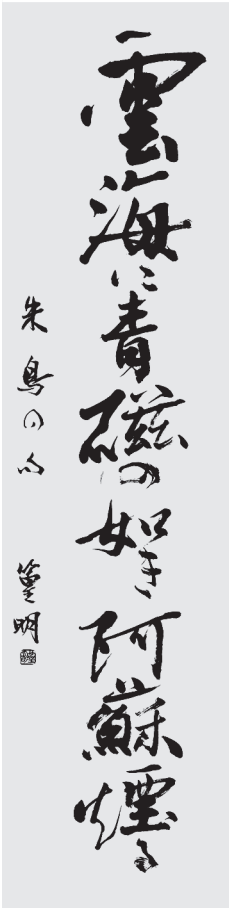 雲海に青磁の如き阿蘇煙る
朱鳥の句 篁明